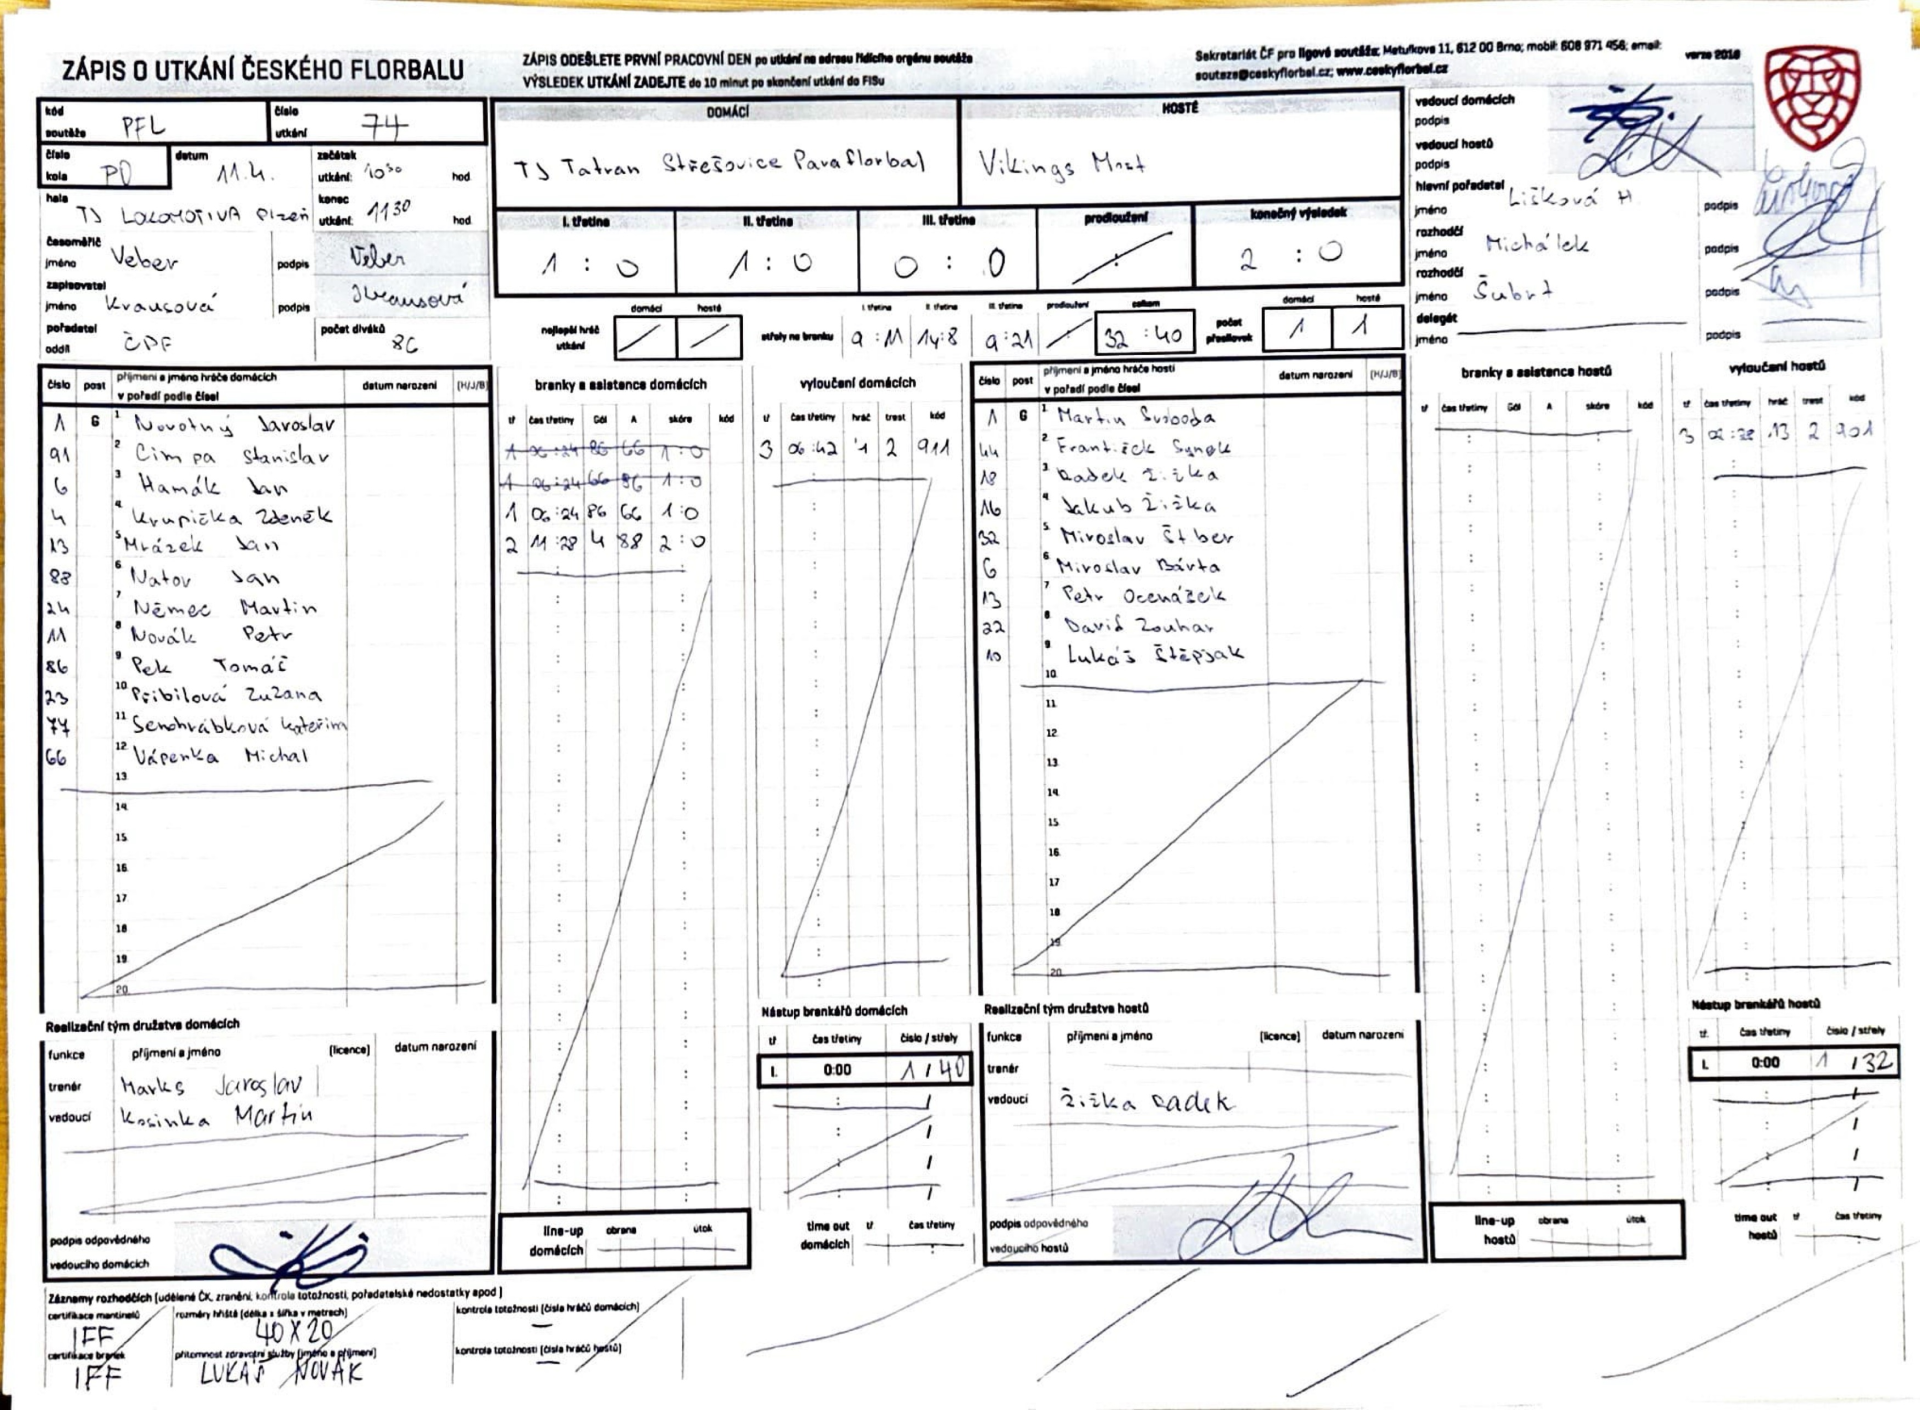 ZÁPIS O UTKÁNÍ ČESKÉHO FLORBALU
ZÁPIS ODEŠLETE PRVNÍ PRACOVNÍ DEN po utkání na adresu řídícího orgánu soutěže
VÝSLEDEK UTKÁNÍ ZADEJTE do 10 minut po skončení utkání do FISu
Sekretariát ČF pro ligové soutěže: Metuřkova 11, 612 00 Brno; mobil: 608 971 456; email:
souteze@ceskyflorbal.cz; www.ceskyflorbal.cz
verze 2018
kód soutěže PFL
číslo utkání 74
číslo kola PO
datum 11.4.
začátek utkání: 10³⁰ hod
hala TJ LOKOMOTIVA Plzeň
konec utkání: 11 30 hod
časoměřič jméno Veber podpis Veber
zapisovatel jméno Krausová podpis Krausová
pořadatel oddíl ČPF
počet diváků 86
DOMÁCÍ
TJ Tatran Střešovice Paraflorbal
HOSTÉ
Vikings Most
I. třetina II. třetina III. třetina prodloužení konečný výsledek
1 : 0 1 : 0 0 : 0 : 2 : 0
nejlepší hráč utkání domácí hosté
střely na branku I. třetina II. třetina III. třetina prodloužení celkem
9 : 11 14 : 8 9 : 21 32 : 40
počet přesilovek domácí hosté
1 1
vedoucí domácích podpis
vedoucí hostů podpis
hlavní pořadatel jméno Lišková H. podpis
rozhodčí jméno Michálek podpis
rozhodčí jméno Šubrt podpis
delegát jméno podpis
číslo post příjmení a jméno hráče domácích v pořadí podle čísel datum narození (H/J/B)
1 G 1 Novotný Jaroslav
91 2 Cimpa Stanislav
6 3 Hamák Jan
4 4 Krupička Zdeněk
13 5 Mrázek Jan
88 6 Natov Jan
24 7 Němec Martin
11 8 Novák Petr
86 9 Pek Tomáš
23 10 Přibilová Zuzana
77 11 Senohrábková Kateřina
66 12 Vápenka Michal
13
14
15
16
17
18
19
20
branky a asistence domácích
tř čas třetiny Gól A skóre kód
1 06:24 86 66 1:0
1 06:24 66 86 1:0
1 06:24 86 66 1:0
2 11:28 4 88 2:0
vyloučení domácích
tř čas třetiny hráč trest kód
3 06:42 1 2 911
číslo post příjmení a jméno hráče hostí v pořadí podle čísel datum narození (H/J/B)
1 G 1 Martin Svoboda
44 2 František Synek
18 3 Radek Žižka
16 4 Jakub Žižka
32 5 Miroslav Štiber
6 6 Miroslav Bárta
13 7 Petr Ocenášek
22 8 David Zouhar
10 9 Lukáš Štěpjak
10
11
12
13
14
15
16
17
18
19
20
branky a asistence hostů
tř čas třetiny Gól A skóre kód
vyloučení hostů
tř čas třetiny hráč trest kód
3 02:28 13 2 901
Realizační tým družstva domácích
funkce příjmení a jméno (licence) datum narození
trenér Marks Jaroslav
vedoucí Kosinka Martin
podpis odpovědného vedoucího domácích
line-up domácích obrana útok
Nástup brankářů domácích
tř čas třetiny číslo / střely
I. 0:00 1 / 40
time out domácích tř čas třetiny
Realizační tým družstva hostů
funkce příjmení a jméno (licence) datum narození
trenér
vedoucí Žižka Radek
podpis odpovědného vedoucího hostů
line-up hostů obrana útok
Nástup brankářů hostů
tř. čas třetiny číslo / střely
I. 0:00 1 / 32
time out hostů tř čas třetiny
Záznamy rozhodčích (udělené ČK, zranění, kontrola totožnosti, pořadatelské nedostatky apod.)
certifikace mantinelů IFF
rozměry hřiště (délka x šířka v metrech) 40 X 20
kontrola totožnosti (čísla hráčů domácích) –
certifikace branek IFF
přítomnost zdravotní služby (jméno a příjmení) LUKÁŠ NOVÁK
kontrola totožnosti (čísla hráčů hostů) –